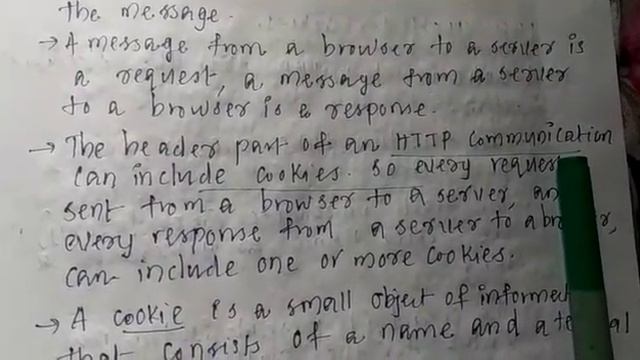 the message.
→ A message from a browser to a server is
a request, a message from a server
to a browser is a response.
→ The header part of an HTTP communication
can include cookies. so every request
sent from a browser to a server,
every response from a server to a
can include one or more cookies.
→ A cookie is a small object of
that consists of a name and a